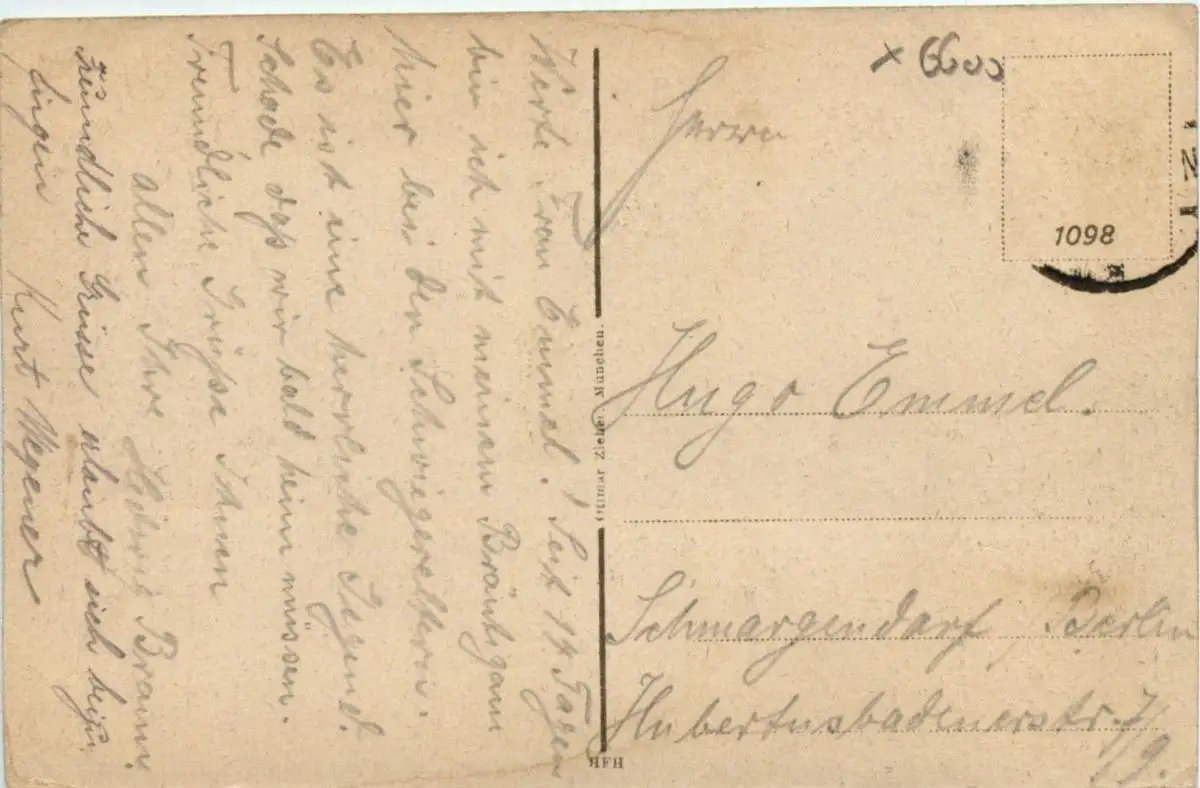 Werte Frau Emmel! Seit 14 Tagen
bin ich mit meinem Bräutigam
hier bei den Schwiegereltern.
Es ist eine herrliche Gegend.
Schade daß wir bald heim müssen.
Freundliche Grüße Ihnen
allen Ihre Braun.
Freundliche Grüsse erlaubt sich beizu
fügen
Kurt Wegener
Ottmar Zieher, München.
HFH
x 6600
1098
N
Herrn
Hugo Emmel.
Schmargendorf, Berlin
Hubertusbadenerstr. 7/9.